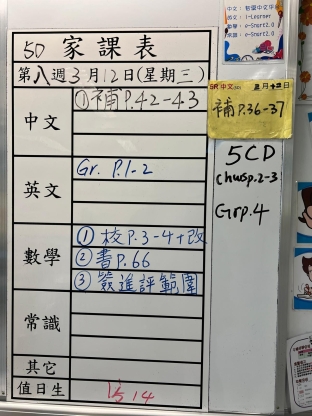 5D 家課表
第八週3月12日(星期三)
中文
①補P.42-43
英文
Gr. P.1-2
數學
①校P.3-4+改
②書P.66
③簽進評範圍
常識
其它
值日生
15 14
中文：
英文： i-Learner
數學： e-Smart2.0
常識： e-Smart2.0
5R 中文
補P.36-37
5CD
Chwsp.2-3
Grp.4